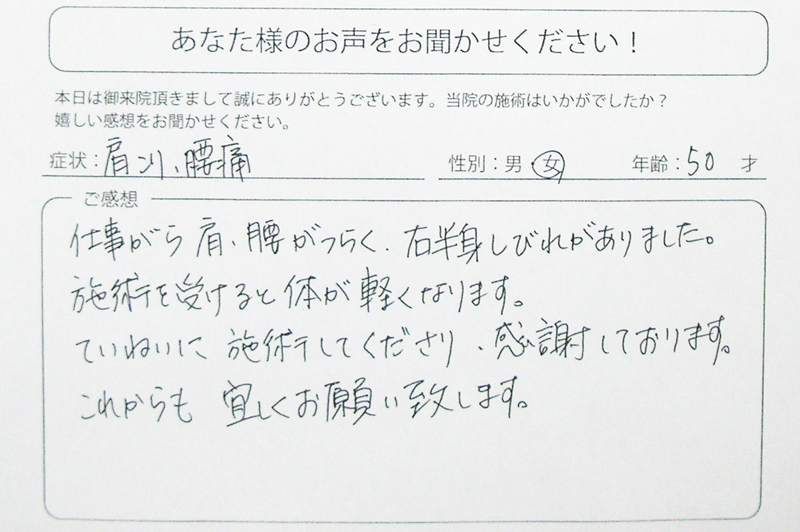 あなた様のお声をお聞かせください！
本日は御来院頂きまして誠にありがとうございます。当院の施術はいかがでしたか？
嬉しい感想をお聞かせください。
症状：肩コリ、腰痛 性別：男・女 年齢：50 才
ご感想
仕事がら肩、腰がつらく、右半身しびれがありました。
施術を受けると体が軽くなります。
ていねいに施術してくださり、感謝しております。
これからも宜しくお願い致します。